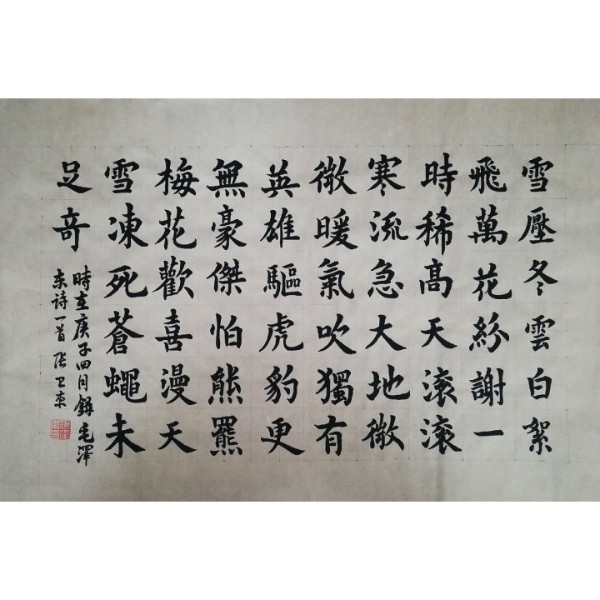 雪壓冬雲白絮
飛萬花紛謝一
時稀高天滾滾
寒流急大地微
微暖氣吹獨有
英雄驅虎豹更
無豪傑怕熊羆
梅花歡喜漫天
雪凍死蒼蠅未
足奇
時在庚子四月錄毛澤
东诗一首 张卫东